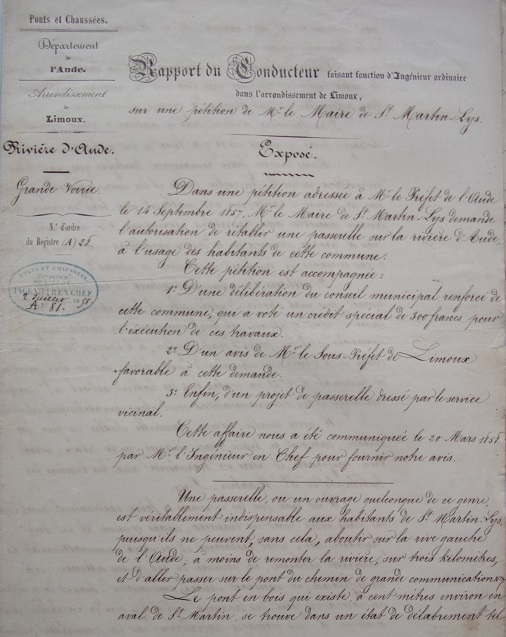 Ponts et Chaussées.
Département
de
l'Aude.
Arrondissement
de
Limoux.
Rivière d'Aude.
Grande Voirie.
N.º d'ordre
du Registre (A) 28.
PONTS ET CHAUSSÉES
INGÉNIEUR EN CHEF
Rapport du Conducteur faisant fonction d'Ingénieur ordinaire
dans l'arrondissement de Limoux,
sur une pétition de Mr. le Maire de St Martin-Lys.
Exposé.
Dans une pétition adressée à Mr. le Préfet de l'Aude
le 14 Septembre 1857, Mr. le Maire de St. Martin-Lys demande
l'autorisation de rétablir une passerelle sur la rivière d'Aude,
à l'usage des habitants de cette commune.
Cette pétition est accompagnée:
1º D'une délibération du conseil municipal renforcé de
cette commune, qui a voté un crédit spécial de 300 francs pour
l'exécution de ces travaux.
2º D'un avis de Mr. le Sous-Préfet de Limoux
favorable à cette demande.
3º Enfin, d'un projet de passerelle dressé par le service
vicinal.
Cette affaire nous a été communiquée le 20 Mars 1858
par Mr. l'Ingénieur en Chef pour fournir notre avis.
Une passerelle, ou un ouvrage quelconque de ce genre,
est véritablement indispensable aux habitants de St. Martin-Lys,
puisqu'ils ne peuvent, sans cela, aboutir sur la rive gauche
de l'Aude, à moins de remonter la rivière, sur trois kilomètres,
et d'aller passer sur le pont du chemin de grande communication
Le pont en bois qui existe à cent mètres environ en
aval de St. Martin, se trouve dans un état de délabrement tel